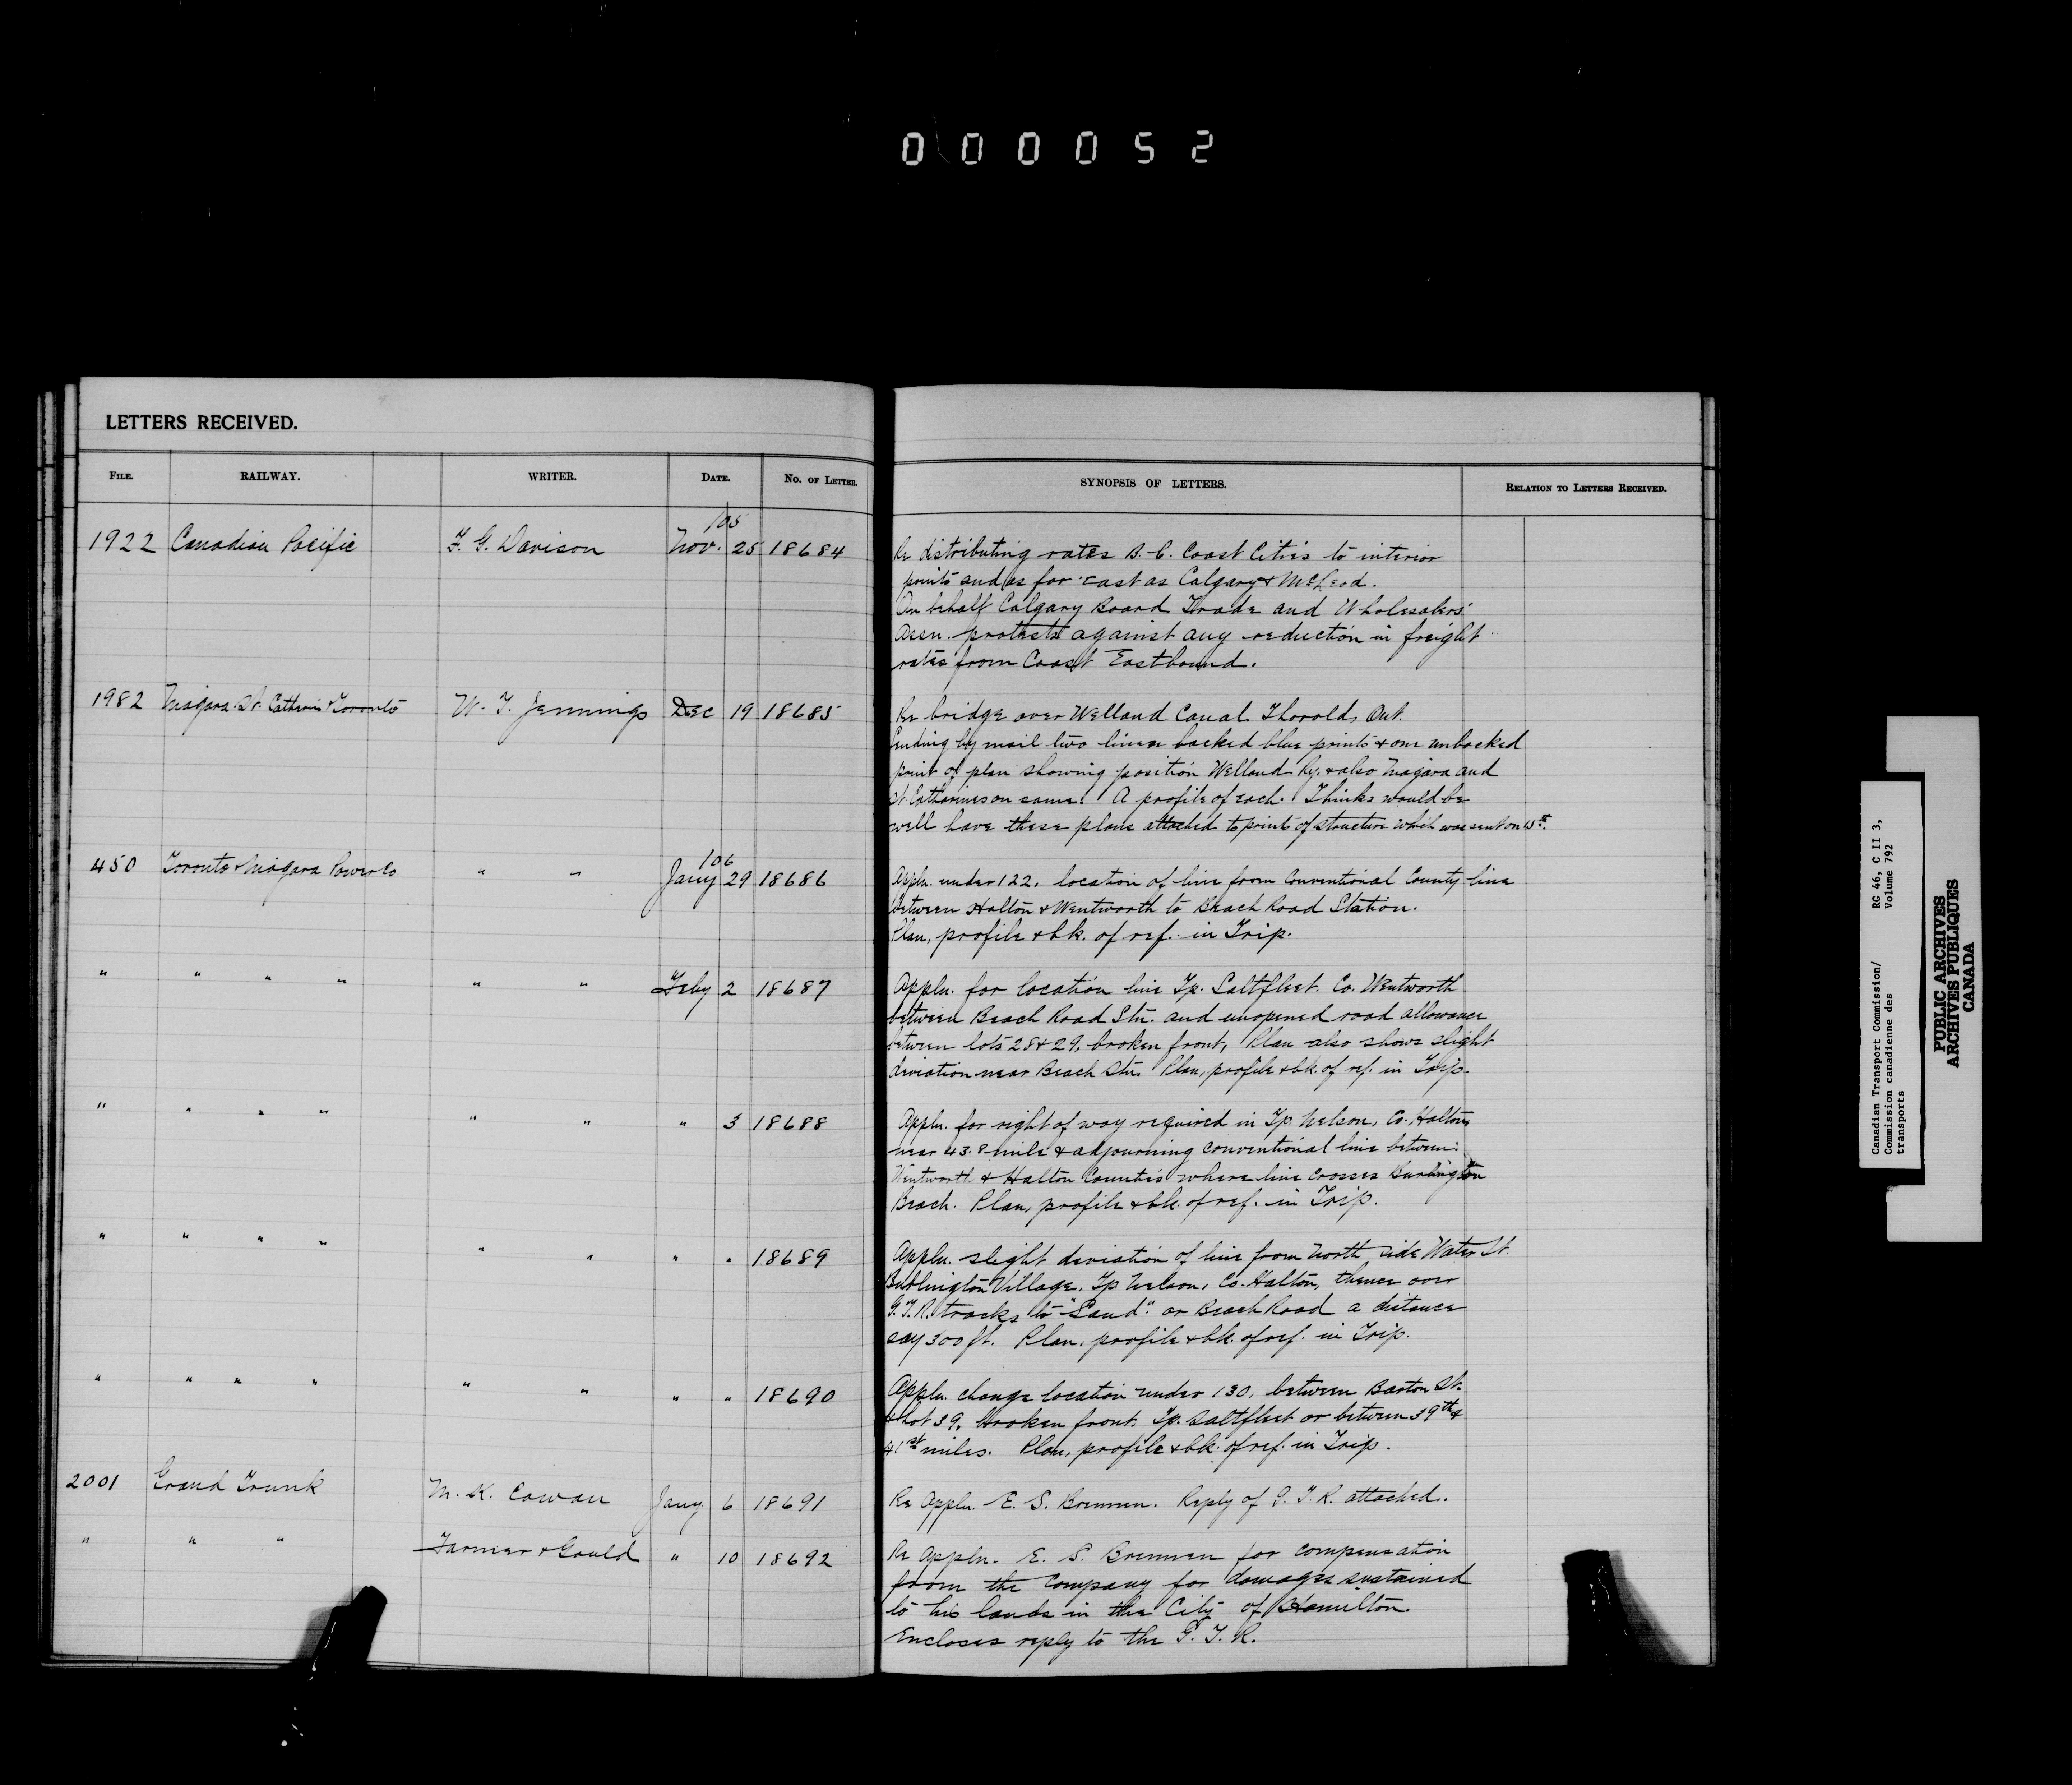 000052
LETTERS RECEIVED.
FILE. RAILWAY. WRITER. DATE. NO. OF LETTER. SYNOPSIS OF LETTERS. RELATION TO LETTERS RECEIVED.
'05
1922 Canadian Pacific F. G. Davison Nov. 25 18684 Re distributing rates B.C. Coast Cities to interior
points and as far East as Calgary & McLeod.
On behalf Calgary Board Trade and Wholesalers'
Assn. protests against any reduction in freight
rates from Coast Eastbound.
1982 Niagara St. Catharines & Toronto W. T. Jennings Dec 19 18685 Re bridge over Welland Canal Thorold, Ont.
Sending by mail two linen backed blue prints & one unbacked
print of plan showing position Welland Ry. & also Niagara and
St. Catharines on same. A profile of each. Thinks would be
well have these plans attached to prints of structure which was sent on 15th.
'06
450 Toronto & Niagara Power Co " " Jany 29 18686 Appln. under 122, location of line from Conventional County line
between Halton & Wentworth to Beach Road Station.
Plan, profile & bk. of ref. in Trip.
" " " " " " Feby 2 18687 Appln. for location line Tp. Saltfleet Co. Wentworth
between Beach Road Stn. and unopened road allowance
between lots 28 & 29, broken front, Plan also shows slight
deviation near Beach Stn. Plan, profile & bk. of ref. in Trip.
" " " " " " " 3 18688 Appln. for right of way required in Tp. Nelson, Co. Halton,
near 43.8 mile & adjourning conventional line between
Wentworth & Halton Counties where line crosses Burlington
Beach. Plan, profile & bk. of ref. in Trip.
" " " " " " " " 18689 Appln. slight deviation of line from North side Water St.
Burlington Village, Tp Nelson, Co. Halton, thence over
G.T.R. tracks to "Sand" or Beach Road a distance
say 300 ft. Plan, profile & bk. of ref. in Trip.
" " " " " " " " 18690 Appln. change location under 130, between Barton St.
& Lot 39, broken front, Tp. Saltfleet or between 39th &
41st miles. Plan, profile & bk. of ref. in Trip.
2001 Grand Trunk M. K. Cowan Jany 6 18691 Re Appln. E. S. Brennen. Reply of G. T. R. attached.
" " " Farmer & Gould " 10 18692 Re Appln. E. S. Brennen for compensation
from the Company for damages sustained
to his lands in the City of Hamilton.
Encloses reply to the G. T. R.
Canadian Transport Commission/ RG 46, C II 3,
Commission canadienne des Volume 792
transports
PUBLIC ARCHIVES
ARCHIVES PUBLIQUES
CANADA